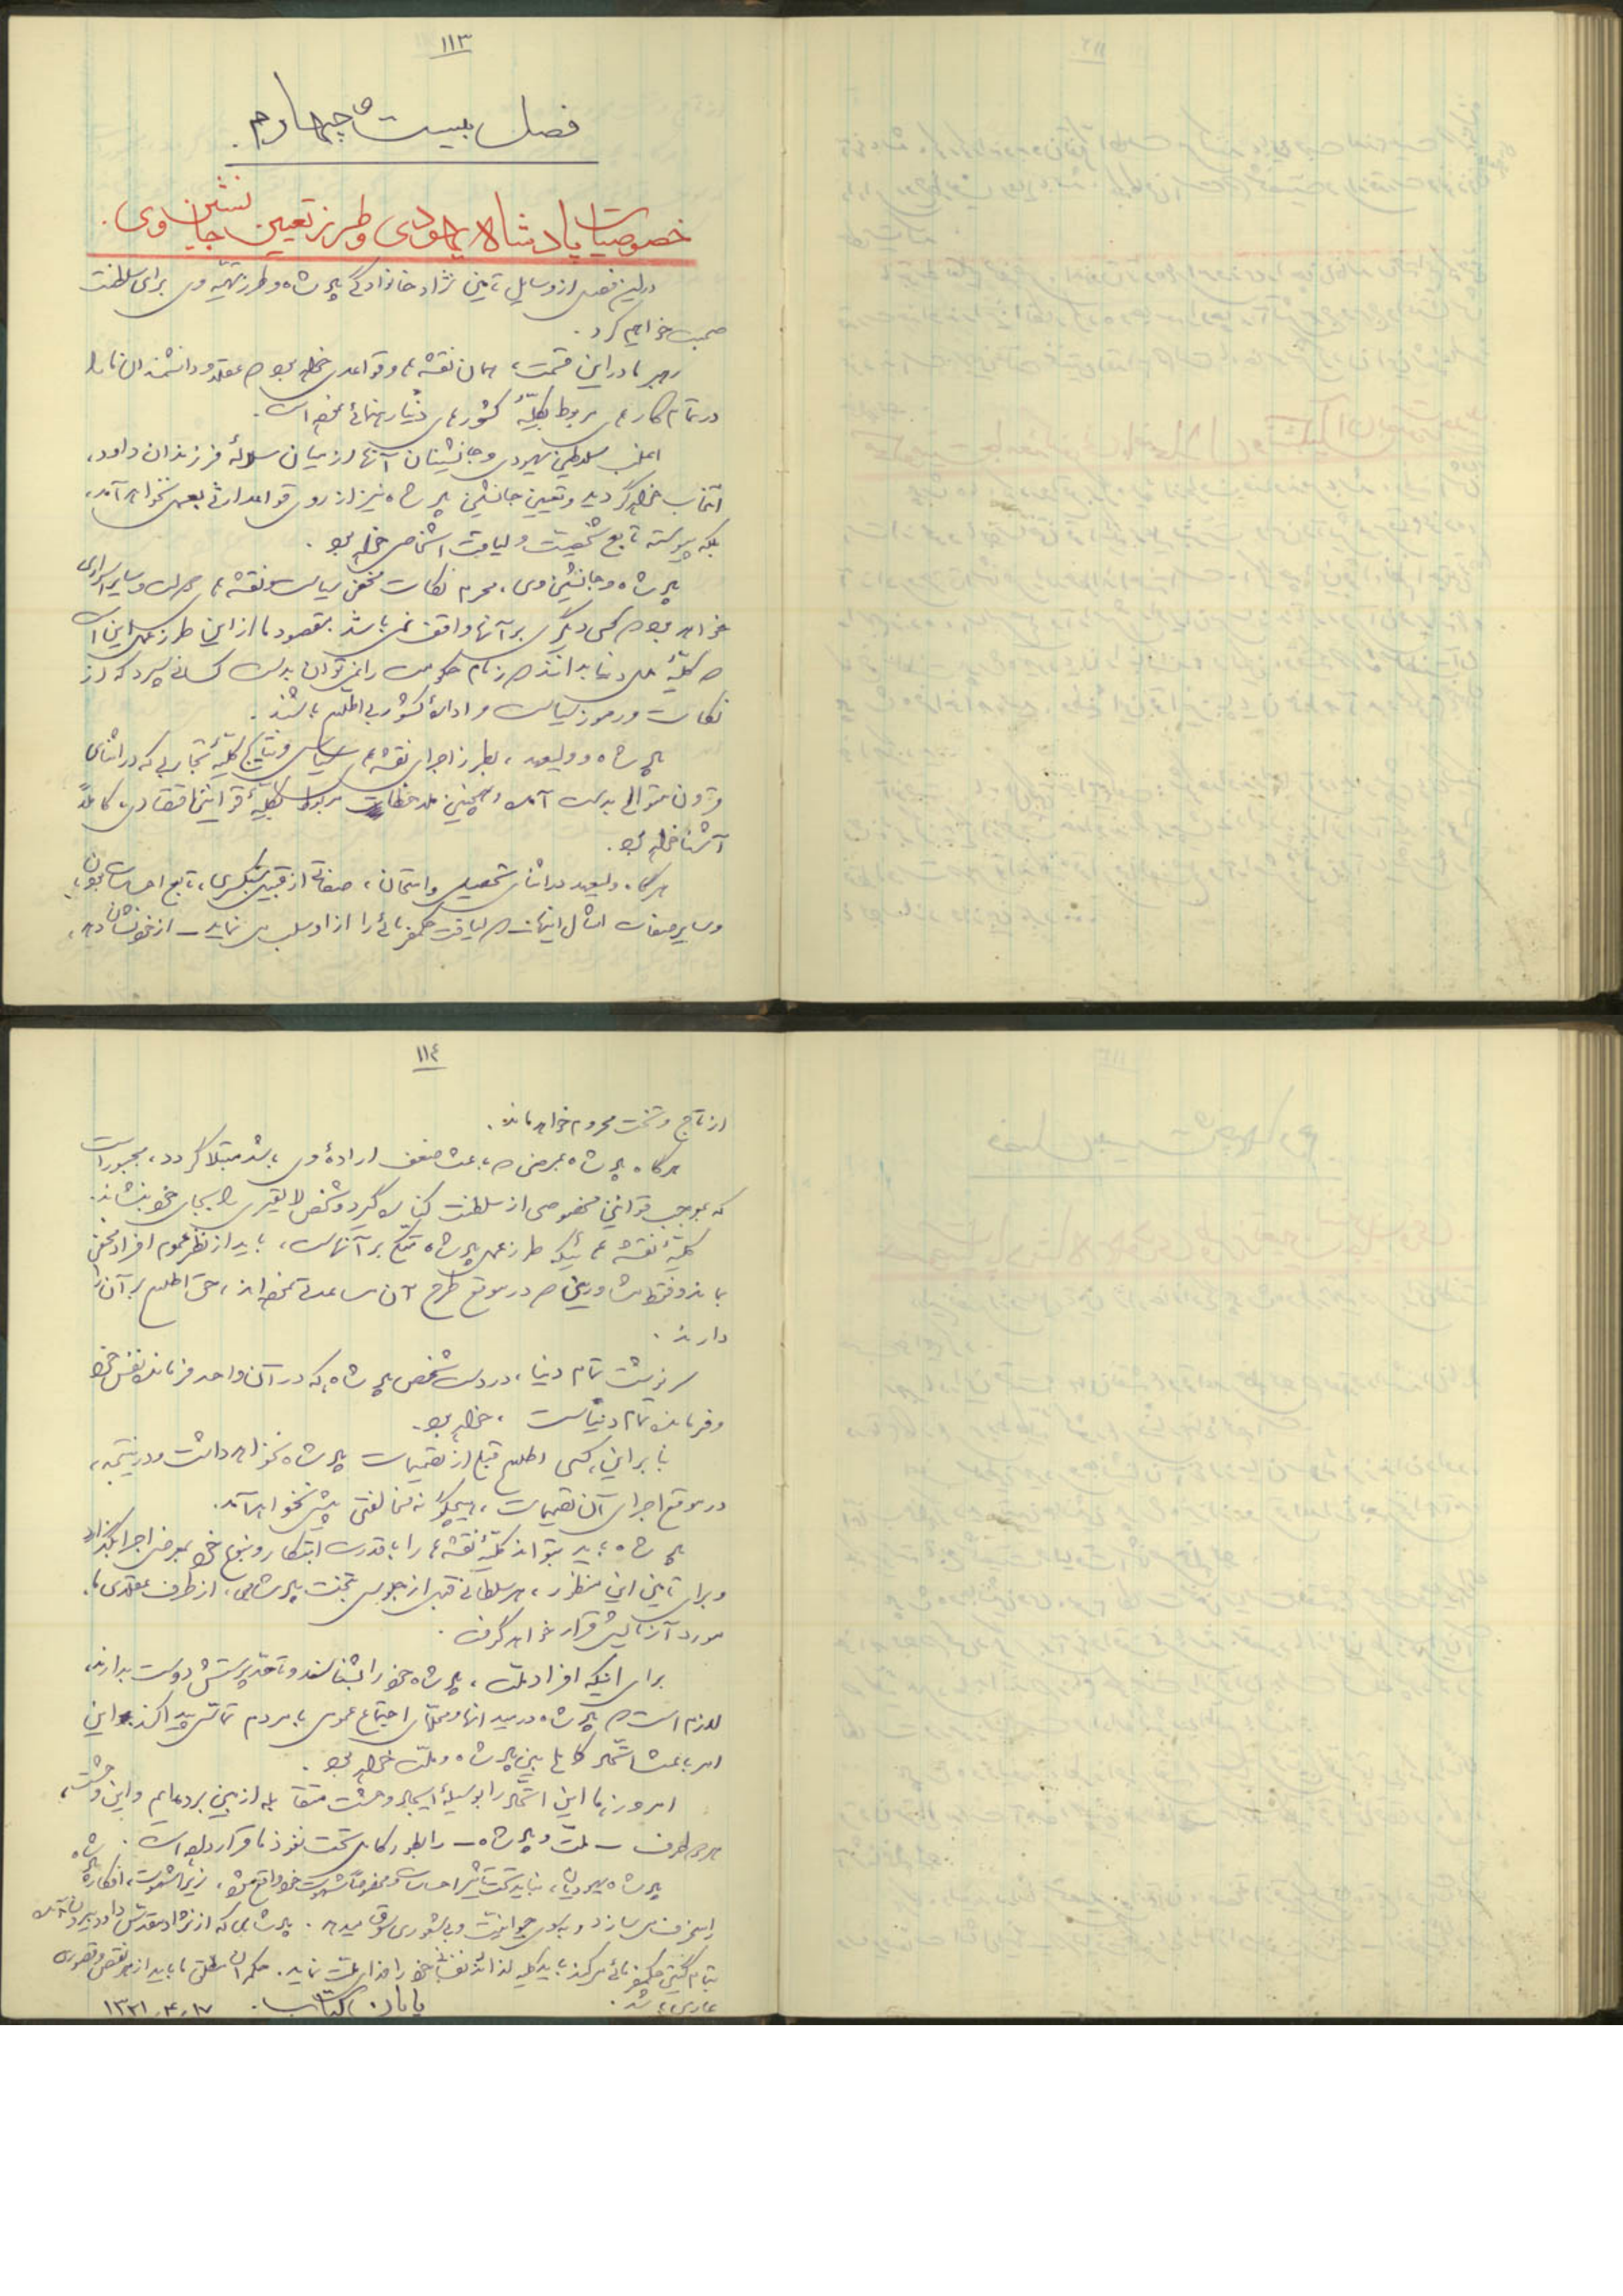 ١١٣
فصل بیست و چهارم.
خصوصیات پادشاه یهودی و طرز تعیین جانشین وی.
در این فصل از وسایل تأمین نژاد خانوادگی پادشاه و طرز تهیّه وی برای سلطنت
صحبت خواهیم کرد.
رهبر ما در این قسمت، همان نقشه ها و قواعدی خواهد بود که عقلا و دانشمندان ما را
در تمام کارهای مربوط بکلیّهٔ کشورهای دنیا رهنمائی نموده است.
اغلب سلاطین یهودی و جانشینان آنها از میان سلالهٔ فرزندان داود،
انتخاب خواهد گردید و تعیین جانشین پادشاه نیز از روی قواعد ارثی بعمل نخواهد آمد،
بلکه پیوسته تابع شخصیت و لیاقت اشخاص خواهد بود.
پادشاه و جانشین وی، محرم نکات مخفی سیاست و نقشه های ما و سایر اسراری
خواهد بود که کسی دیگر بر آنها واقف نمی باشد. مقصود ما از این طرز عمل این است
که کلیّهٔ ملل دنیا بدانند که زمام حکومت را نمیتوان بدست کسانی سپرد که از
نکات و رموز سیاست و ادارهٔ کشور بی اطلاع باشند.
پادشاه و ولیعهد، بطرز اجرای نقشه های سیاسی و نتایج کلیّهٔ تجاربی که در اثنای
قرون متوالی بدست آمده و همچنین ملاحظات مربوط بکلیّهٔ قوانین اقتصادی، کاملاً
آشنا خواهد بود.
هرگاه ولیعهد در اثنای تحصیل و امتحان، صفاتی از قبیل سبکسری، تابع احساسات بودن
و سایر صفات امثال اینها که لیاقت حکمفرمائی را از او سلب می نماید ـ از خود نشان دهد،
١١٤
از تاج و تخت محروم خواهد ماند.
هرگاه پادشاه بمرضی که باعث ضعف ارادهٔ وی باشد مبتلا گردد، مجبور است
که بموجب قوانین مخصوصی از سلطنت کناره گیرد و شخص لایقتری را بجای خود بنشاند.
کلیّهٔ نقشه هائیکه طرز عمل پادشاه متکی بر آنهاست، باید از نظر عموم افراد مخفی
بماند و فقط مشاورینی که در موقع طرح آن مساعدتی نموده اند، حق اطلاع بر آن را
دارند.
سرنوشت تمام دنیا، در دست شخص پادشاه، که در آن واحد فرمانده نفس خود
و فرمانده تمام دنیاست، خواهد بود.
بنابراین، کسی اطلاع قبلی از تصمیمات پادشاه نخواهد داشت و در نتیجه،
در موقع اجرای آن تصمیمات، هیچگونه مخالفتی پیش نخواهد آمد.
پادشاه باید بتواند کلیّهٔ نقشه ها را با قدرت ابتکار و نبوغ خود بمعرض اجرا بگذارد
و برای تأمین این منظور، هر سلطانی قبل از جلوس بتخت پادشاهی، از طرف عقلای ما،
مورد آزمایش قرار خواهد گرفت.
برای اینکه افراد ملت، پادشاه خود را بشناسند و تا حد پرستش دوست بدارند،
لازم است که پادشاه در میدانها و محلهای اجتماع عمومی با مردم تماس پیدا کند. این
امر باعث اتحاد کامل بین پادشاه و ملت خواهد بود.
امروز، ما این اتحاد را بوسیلهٔ ایجاد وحشت متقابله از بین برده ایم و این وحشت،
هر دو طرف ـ ملت و پادشاه ـ را بطور کامل تحت نفوذ ما قرار داده است.
پادشاه یهودیان، نباید تحت تأثیر احساسات و مخصوصاً شهوت خود واقع شود، زیرا شهوت، افکار پادشاه
را منحرف می سازد و بسوی حیوانیت و بیشعوری سوق میدهد. پادشاهی که از نژاد مقدس داود بیرون آمده
بتمام گیتی حکمفرمائی میکند باید کلیه لذائذ نفسانی خود را فدای ملت نماید. حکمران مطلق ما باید از هر نقص و قصوری
عاری باشد.
پایان کتاب.
١٣٢١،٣،١٧